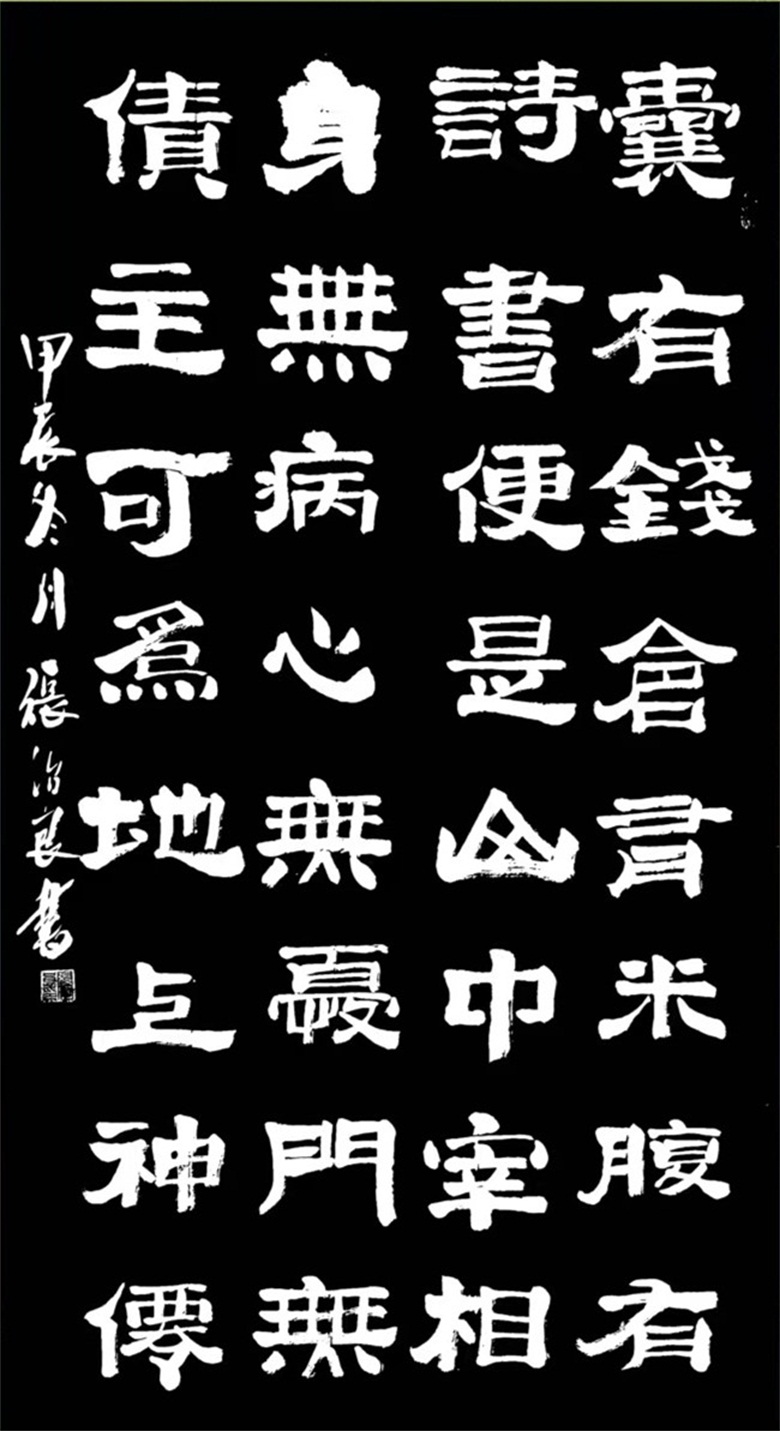 囊有錢倉有米腹有
詩書便是山中宰相
身無病心無憂門無
債主可為地上神僊
甲辰冬月張治良書